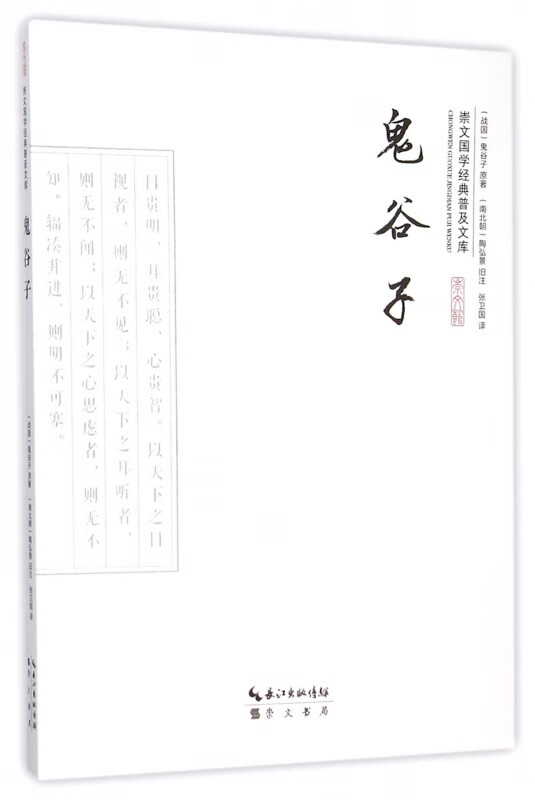 鬼谷子
崇文国学经典普及文库
CHONGWEN GUOXUE JINGDIAN PUJI WENKU
(战国)鬼谷子 原著 (南北朝)陶弘景 旧注 张卫国 译
崇文馆
目贵明,耳贵聪,心贵智。以天下之目
视者,则无不见;以天下之耳听者,
则无不闻;以天下之心思虑者,则无不
知。辐凑并进,则明不可塞。
长江出版传媒
崇文书局
崇文国学经典普及文库
鬼谷子
(战国)鬼谷子 原著 (南北朝)陶弘景 旧注 张卫国 译
长江出版传媒
崇文书局